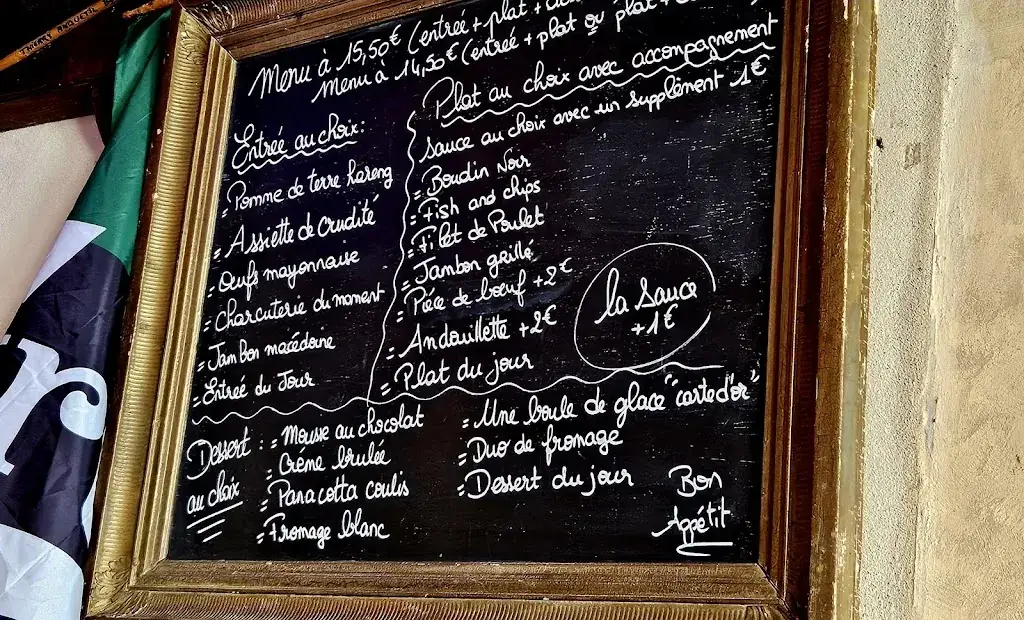 Menu à 15,50€ (entrée + plat +
menu à 14,50€ (entrée + plat ou plat +
Entrée au choix:
= Pomme de terre hareng
= Assiette de Crudité
= Oeufs mayonnaise
= Charcuterie du moment
= Jambon macédoine
= Entrée du Jour
Plat au choix avec accompagnement
sauce au choix avec un supplément 1€
= Boudin Noir
= Fish and chips
= Filet de Poulet
= Jambon grillé
= Pièce de bœuf +2€
= Andouillette +2€
= Plat du jour
la Sauce
+1€
Dessert :
au choix
= Mousse au chocolat
= Crème brulée
= Panacotta coulis
= Fromage blanc
= Une boule de glace "carte d'or"
= Duo de fromage
= Dessert du jour
Bon
Appétit